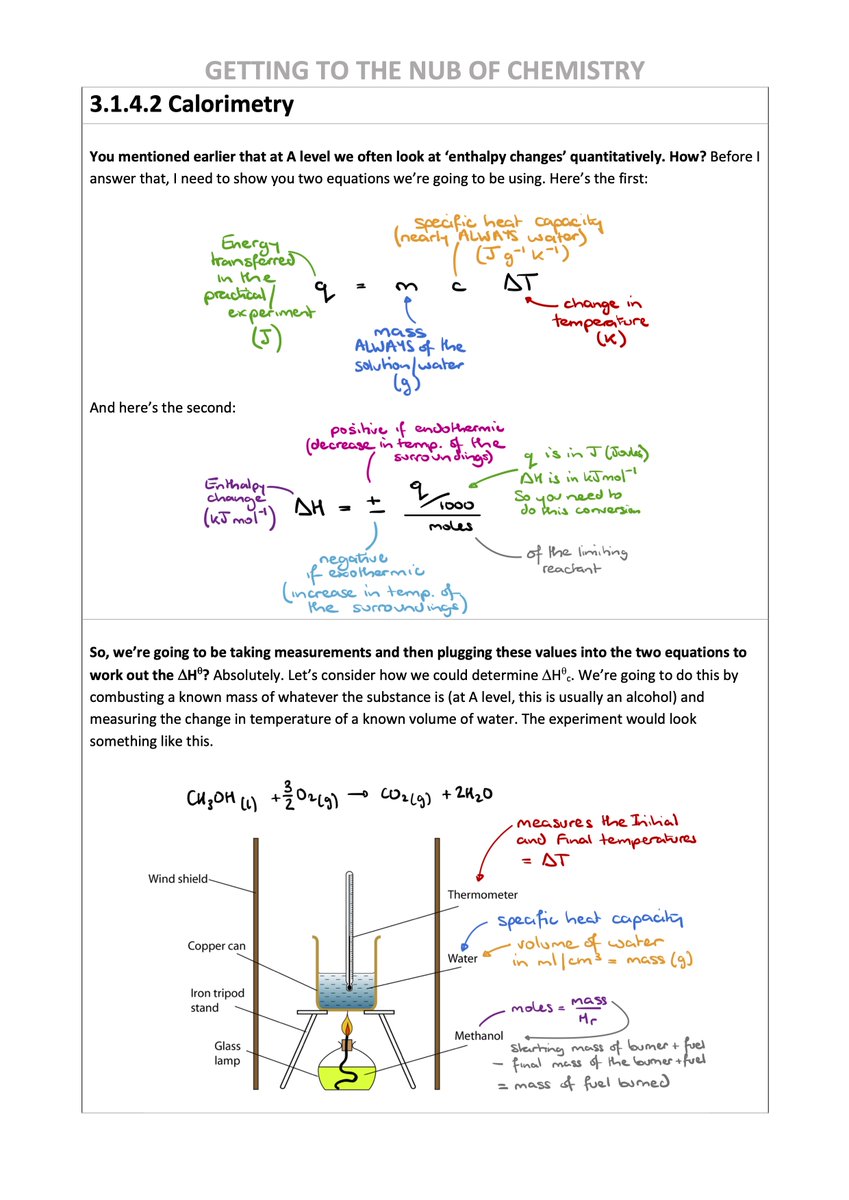 GETTING TO THE NUB OF CHEMISTRY
3.1.4.2 Calorimetry
You mentioned earlier that at A level we often look at ‘enthalpy changes’ quantitatively. How? Before I
answer that, I need to show you two equations we’re going to be using. Here’s the first:
specific heat capacity
(nearly ALWAYS water)
(J g⁻¹ K⁻¹)
Energy
transferred
in the
practical/
experiment
(J)
q = m c ΔT
change in
temperature
(K)
mass
ALWAYS of the
solution/water
(g)
And here’s the second:
positive if endothermic
(decrease in temp. of the
surroundings)
q is in J (Joules)
ΔH is in kJmol⁻¹
So you need to
do this conversion
Enthalpy
change
(kJmol⁻¹)
ΔH = ± q/1000
moles
of the limiting
reactant
negative
if exothermic
(increase in temp. of
the surroundings)
So, we’re going to be taking measurements and then plugging these values into the two equations to
work out the ΔHᶿ? Absolutely. Let’s consider how we could determine ΔHᶿc. We’re going to do this by
combusting a known mass of whatever the substance is (at A level, this is usually an alcohol) and
measuring the change in temperature of a known volume of water. The experiment would look
something like this.
CH₃OH (l) + 3/2 O₂(g) → CO₂(g) + 2H₂O
measures the Initial
and Final temperatures
= ΔT
Wind shield
Thermometer
specific heat capacity
Copper can
volume of water
in ml/cm³ = mass (g)
Water
Iron tripod
stand
moles = mass
Mr
Methanol
Glass
lamp
Starting mass of burner + fuel
– final mass of the burner + fuel
= mass of fuel burned